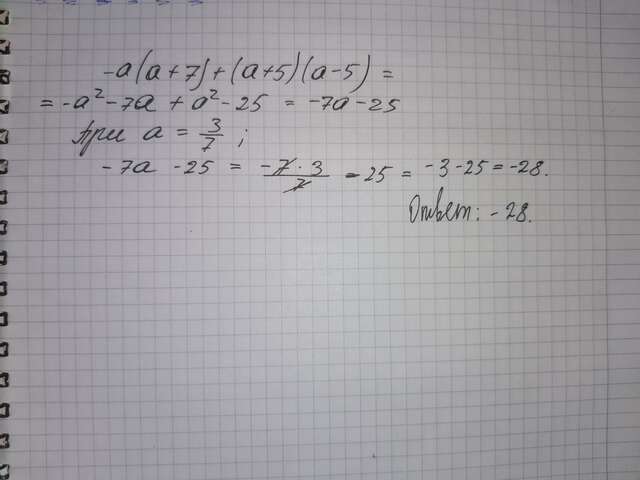 -a(a+7)+(a+5)(a-5)=
= -a²-7a + a²-25 = -7a-25
При a = 3/7 ;
-7a -25 = -7·3/7 -25 = -3-25 = -28.
Ответ: -28.